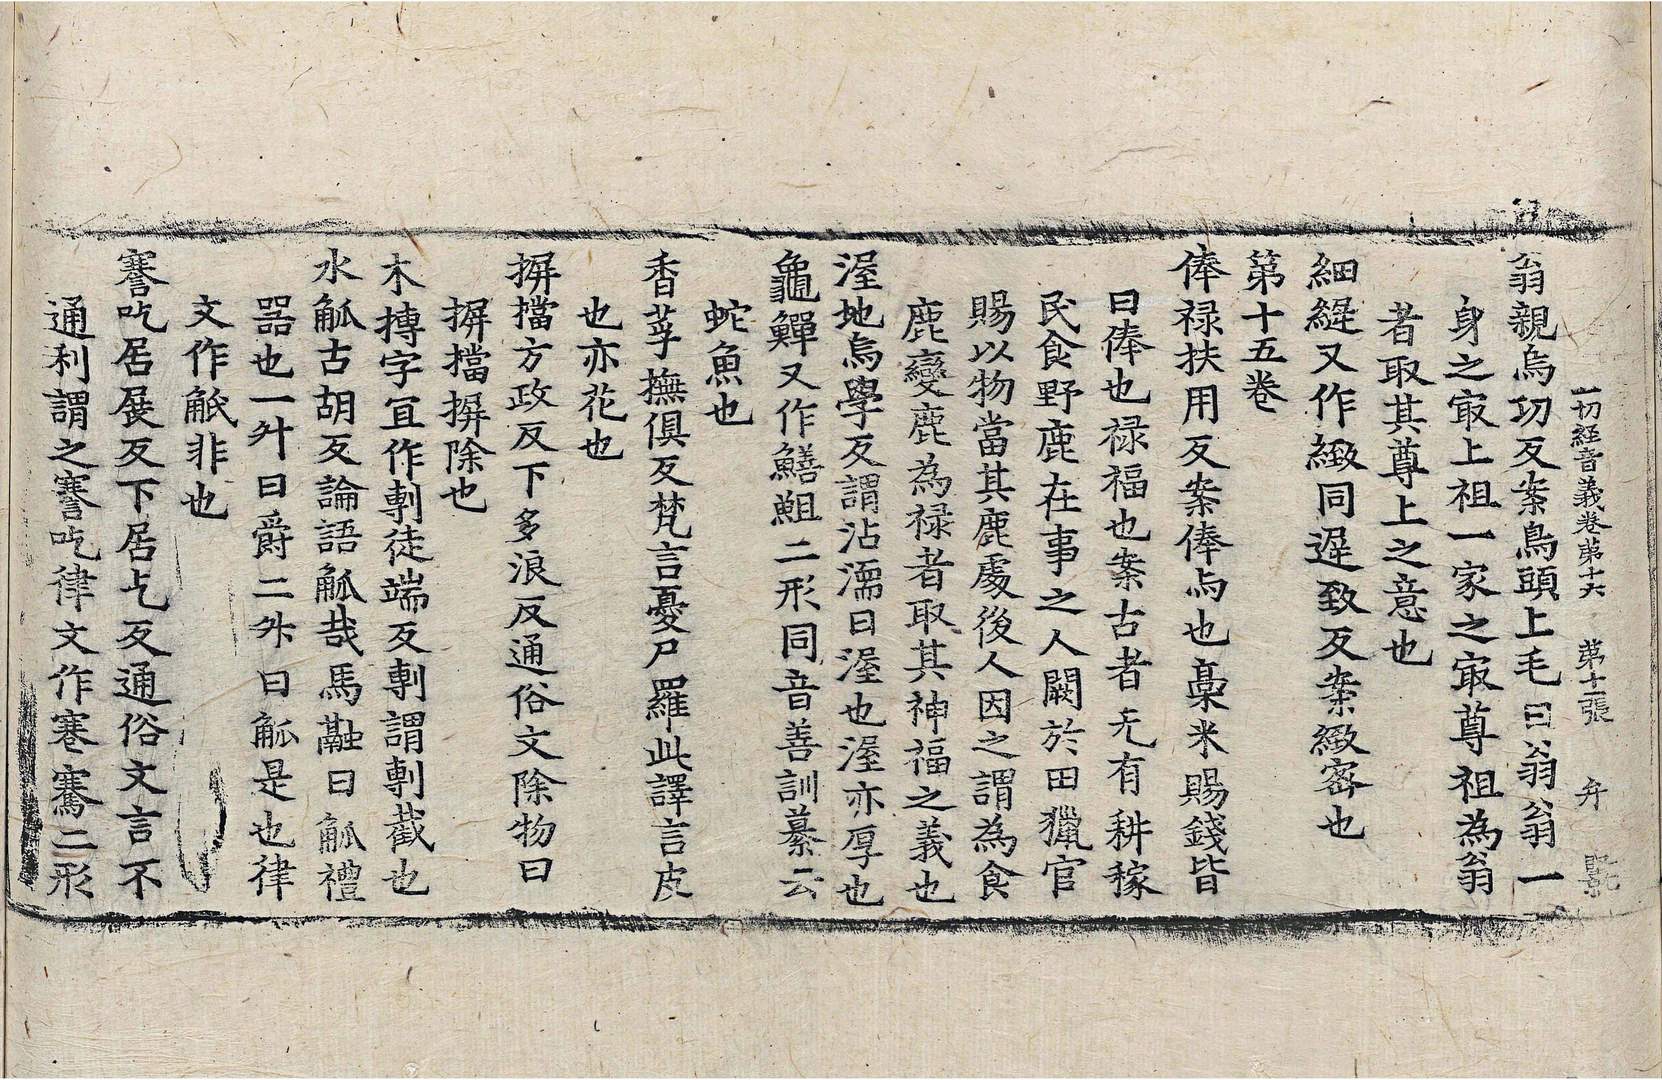 一切経音義卷第十六 第十二張 弁
翁親烏功反案鳥頭上毛曰翁翁一
身之㝡上祖一家之㝡尊祖為翁
者取其尊上之意也
細緹又作緻同遟致反案緻宻也
第十五卷
俸禄扶用反案俸与也稾米賜錢皆
曰俸也禄福也案古者无有耕稼
民食野鹿在事之人闕於田獵官
賜以物當其鹿處後人因之謂為食
鹿變鹿為禄者取其神福之義也
渥地烏學反謂沾濡曰渥也渥亦厚也
龜鱓又作鱔䱇二形同音善訓纂云
蛇魚也
香莩撫俱反梵言憂尸羅此譯言皮
也亦花也
摒擋方政反下多浪反通俗文除物曰
摒擋摒除也
木摶字冝作剸徒端反剸謂剸截也
水觚古胡反論語觚哉馬融曰觚禮
器也一升曰爵二升曰觚是也律
文作觝非也
謇吃居展反下居乞反通俗文言不
通利謂之謇吃律文作蹇騫二形